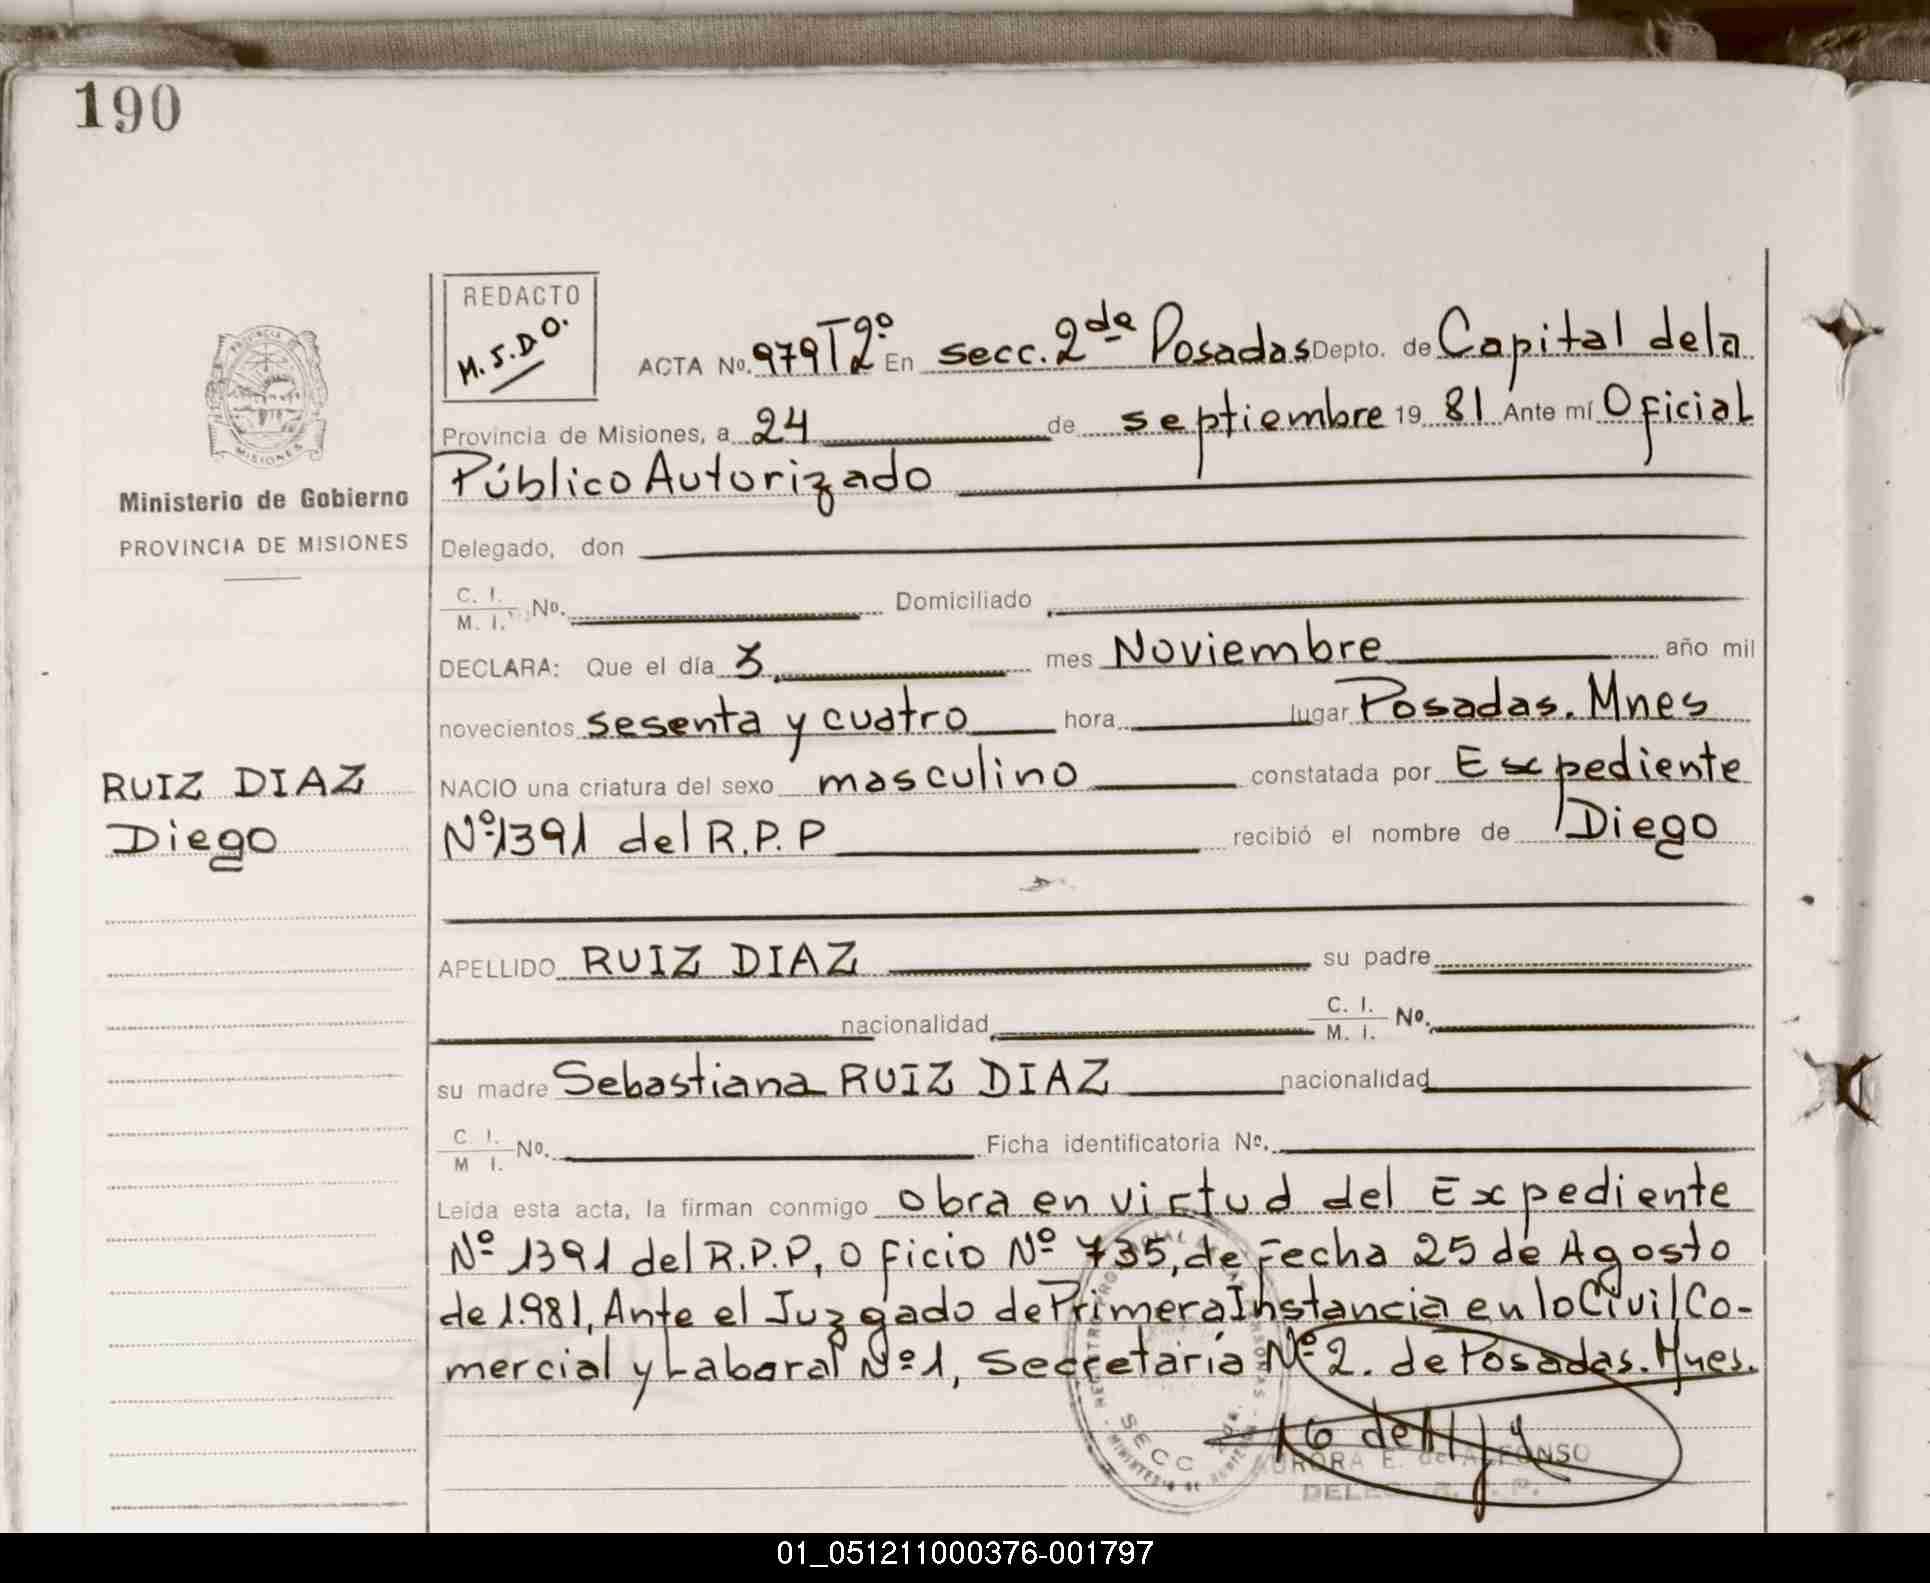 190
REDACTO
M.S.D.O.
ACTA No. 979 T 2º En secc. 2da Posadas Depto. de Capital de la
Provincia de Misiones, a 24 de septiembre 19 81 Ante mí Oficial
Público Autorizado
Delegado, don
C. I. / M. I. No. Domiciliado
DECLARA: Que el día 3 mes Noviembre año mil
novecientos sesenta y cuatro hora lugar Posadas. Mnes
NACIO una criatura del sexo masculino constatada por Expediente
Nº 1391 del R.P.P recibió el nombre de Diego
APELLIDO RUIZ DIAZ su padre
nacionalidad C. I. / M. I. No.
su madre Sebastiana RUIZ DIAZ nacionalidad
C. I. / M I. No. Ficha identificatoria No.
Leída esta acta, la firman conmigo obra en virtud del Expediente
Nº 1391 del R.P.P, oficio Nº 735, de Fecha 25 de Agosto
de 1.981, Ante el Juzgado de Primera Instancia en lo Civil Co-
mercial y Laboral Nº 1, Secretaría Nº 2. de Posadas. Mnes.
AURORA E. de ALFONSO
SECC
PROVINCIA DE
MISIONES
Ministerio de Gobierno
PROVINCIA DE MISIONES
RUIZ DIAZ
Diego
01_051211000376-001797